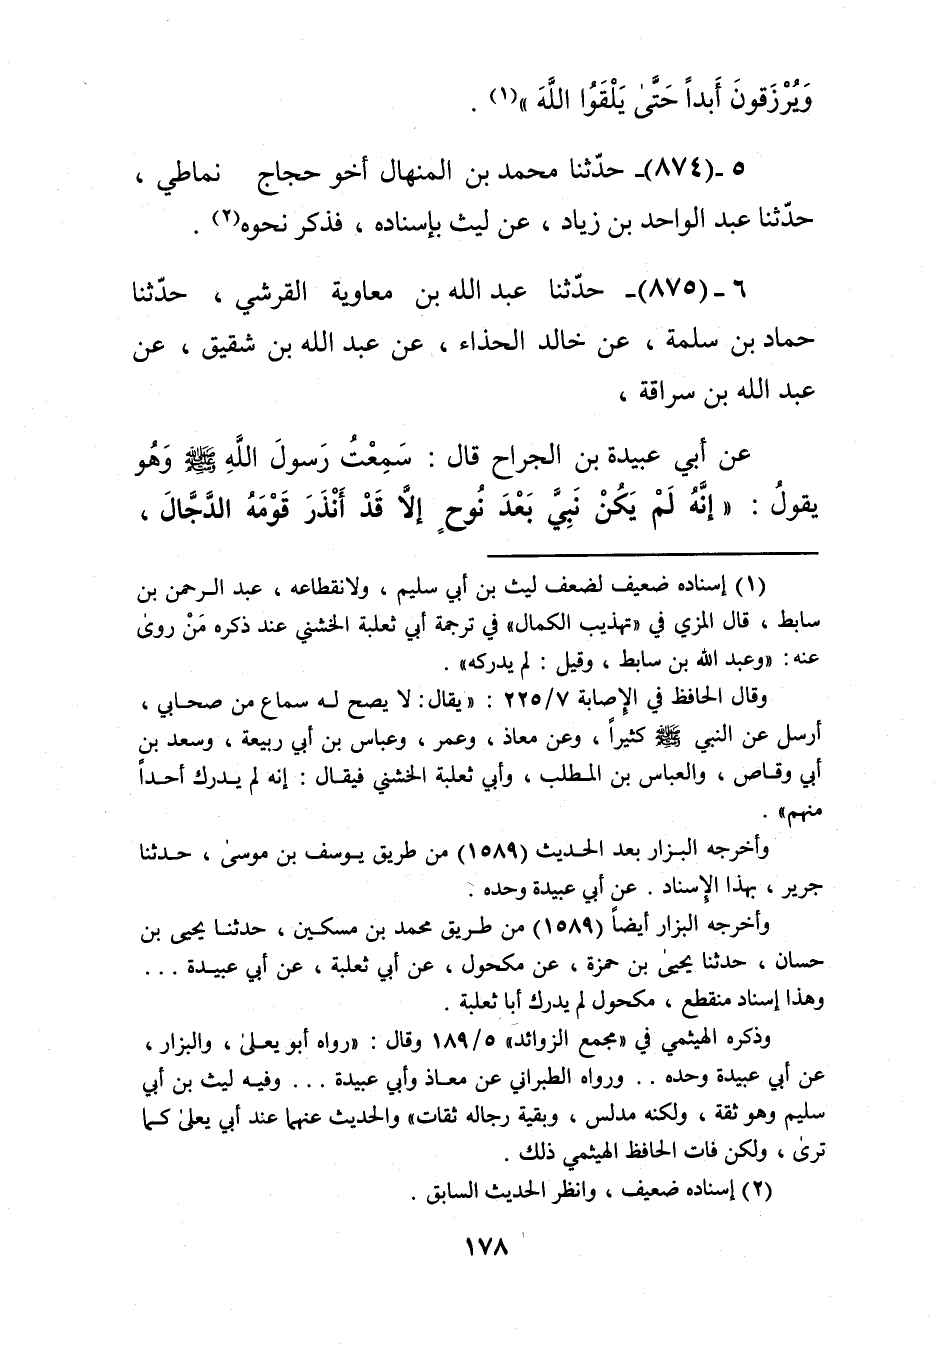 وَيُرْزَقونَ أَبداً حَتَّىٰ يَلْقَوُا اللَّهَ »(١) .
٥ ـ(٨٧٤)ـ حدّثنا محمد بن المنهال أخو حجاج نماطي ،
حدّثنا عبد الواحد بن زياد ، عن ليث بإسناده ، فذكر نحوه(٢) .
٦ ـ (٨٧٥)ـ حدّثنا عبد الله بن معاوية القرشي ، حدّثنا
حماد بن سلمة ، عن خالد الحذاء ، عن عبد الله بن شقيق ، عن
عبد الله بن سراقة ،
عن أبي عبيدة بن الجراح قال : سَمِعْتُ رَسولَ اللَّهِ ﷺ وَهُو
يقولُ : « إنَّهُ لَمْ يَكُنْ نَبِيَّ بَعْدَ نُوحٍ إلَّا قَدْ أَنْذَرَ قَوْمَهُ الدَّجَّالَ ،
(١) إسناده ضعيف لضعف ليث بن أبي سليم ، ولانقطاعه ، عبد الرحمن بن
سابط ، قال المزي في «تهذيب الكمال» في ترجمة أبي ثعلبة الخشني عند ذكره مَنْ روىٰ
عنه: «وعبد الله بن سابط ، وقيل : لم يدركه» .
وقال الحافظ في الإصابة ٢٢٥/٧ : «يقال: لا يصح له سماع من صحابي ،
أرسل عن النبي ﷺ كثيراً ، وعن معاذ ، وعمر ، وعباس بن أبي ربيعة ، وسعد بن
أبي وقاص ، والعباس بن المطلب ، وأبي ثعلبة الخشني فيقال : إنه لم يدرك أحداً
منهم» .
وأخرجه البزار بعد الحديث (١٥٨٩) من طريق يوسف بن موسىٰ ، حدثنا
جرير ، بهذا الإسناد . عن أبي عبيدة وحده .
وأخرجه البزار أيضاً (١٥٨٩) من طريق محمد بن مسكين ، حدثنا يحيى بن
حسان ، حدثنا يحيىٰ بن حمزة ، عن مكحول ، عن أبي ثعلبة ، عن أبي عبيدة ...
وهذا إسناد منقطع ، مكحول لم يدرك أبا ثعلبة .
وذكره الهيثمي في «مجمع الزوائد» ١٨٩/٥ وقال : «رواه أبو يعلىٰ ، والبزار ،
عن أبي عبيدة وحده .. ورواه الطبراني عن معاذ وأبي عبيدة ... وفيه ليث بن أبي
سليم وهو ثقة ، ولكنه مدلس ، وبقية رجاله ثقات» والحديث عنهما عند أبي يعلىٰ كما
ترىٰ ، ولكن فات الحافظ الهيثمي ذلك .
(٢) إسناده ضعيف ، وانظر الحديث السابق .
١٧٨